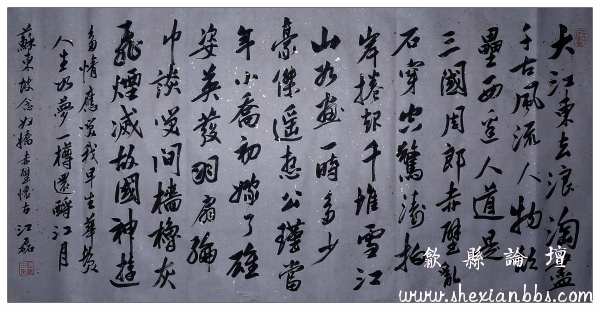 大江東去浪淘盡
千古風流人物故
壘西邊人道是
三國周郎赤壁亂
石穿空驚濤拍
岸捲起千堆雪江
山如畫一時多少
豪傑遥想公瑾當
年小喬初嫁了雄
姿英發羽扇綸
巾談笑間檣櫓灰
飛煙滅故國神遊
多情應笑我早生華髮
人生如夢一樽還酹江月
蘇東坡念奴嬌赤壁懷古 江磊
歙縣論壇
www.shexianbbs.com